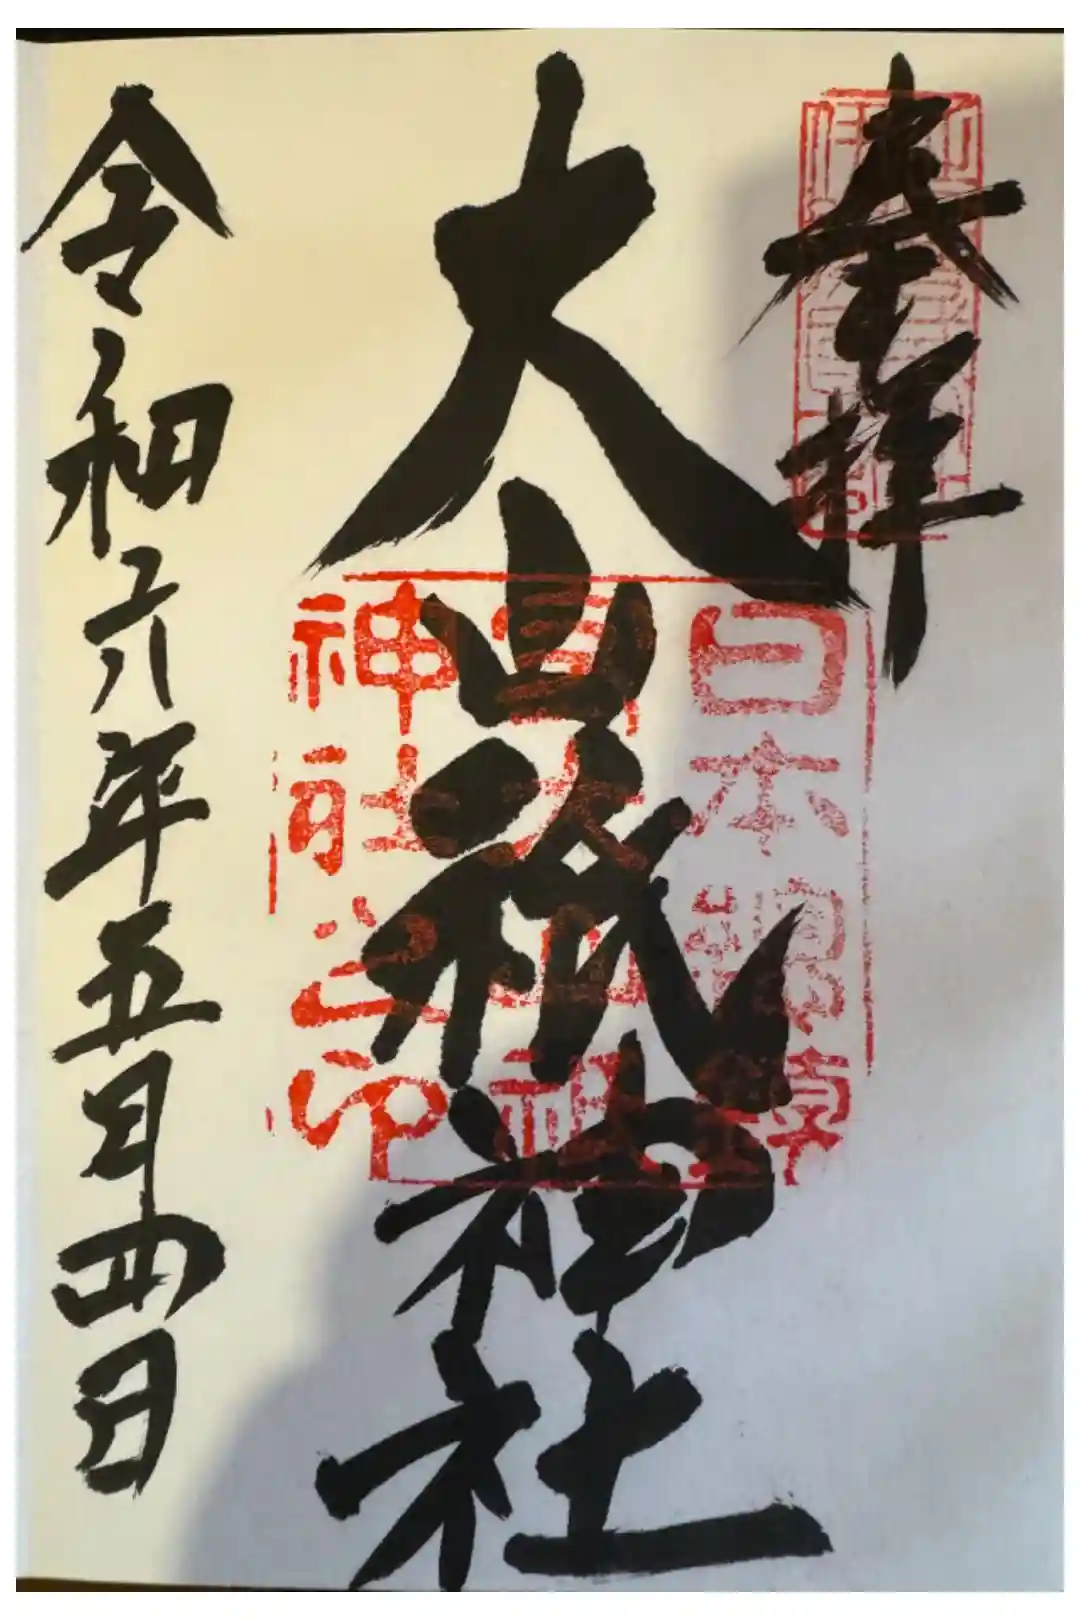 奉拝
大山祇神社
日本総鎮守
神社之印
令和六年五月四日